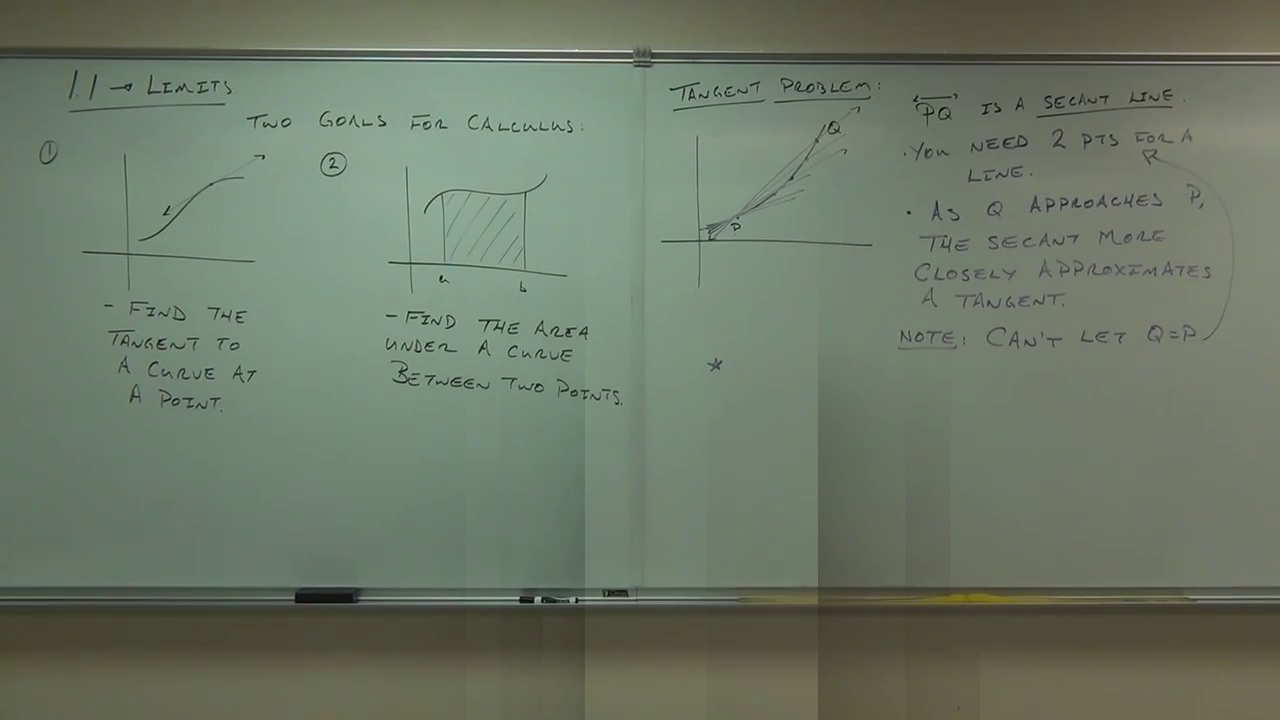 1.1 → LIMITS
TWO GOALS FOR CALCULUS:
①
- FIND THE
TANGENT TO
A CURVE AT
A POINT.
②
a b
- FIND THE AREA
UNDER A CURVE
BETWEEN TWO POINTS.
TANGENT PROBLEM:
Q
P
PQ IS A SECANT LINE.
· YOU NEED 2 PTS FOR A
LINE.
· AS Q APPROACHES P,
THE SECANT MORE
CLOSELY APPROXIMATES
A TANGENT.
NOTE: CAN'T LET Q=P